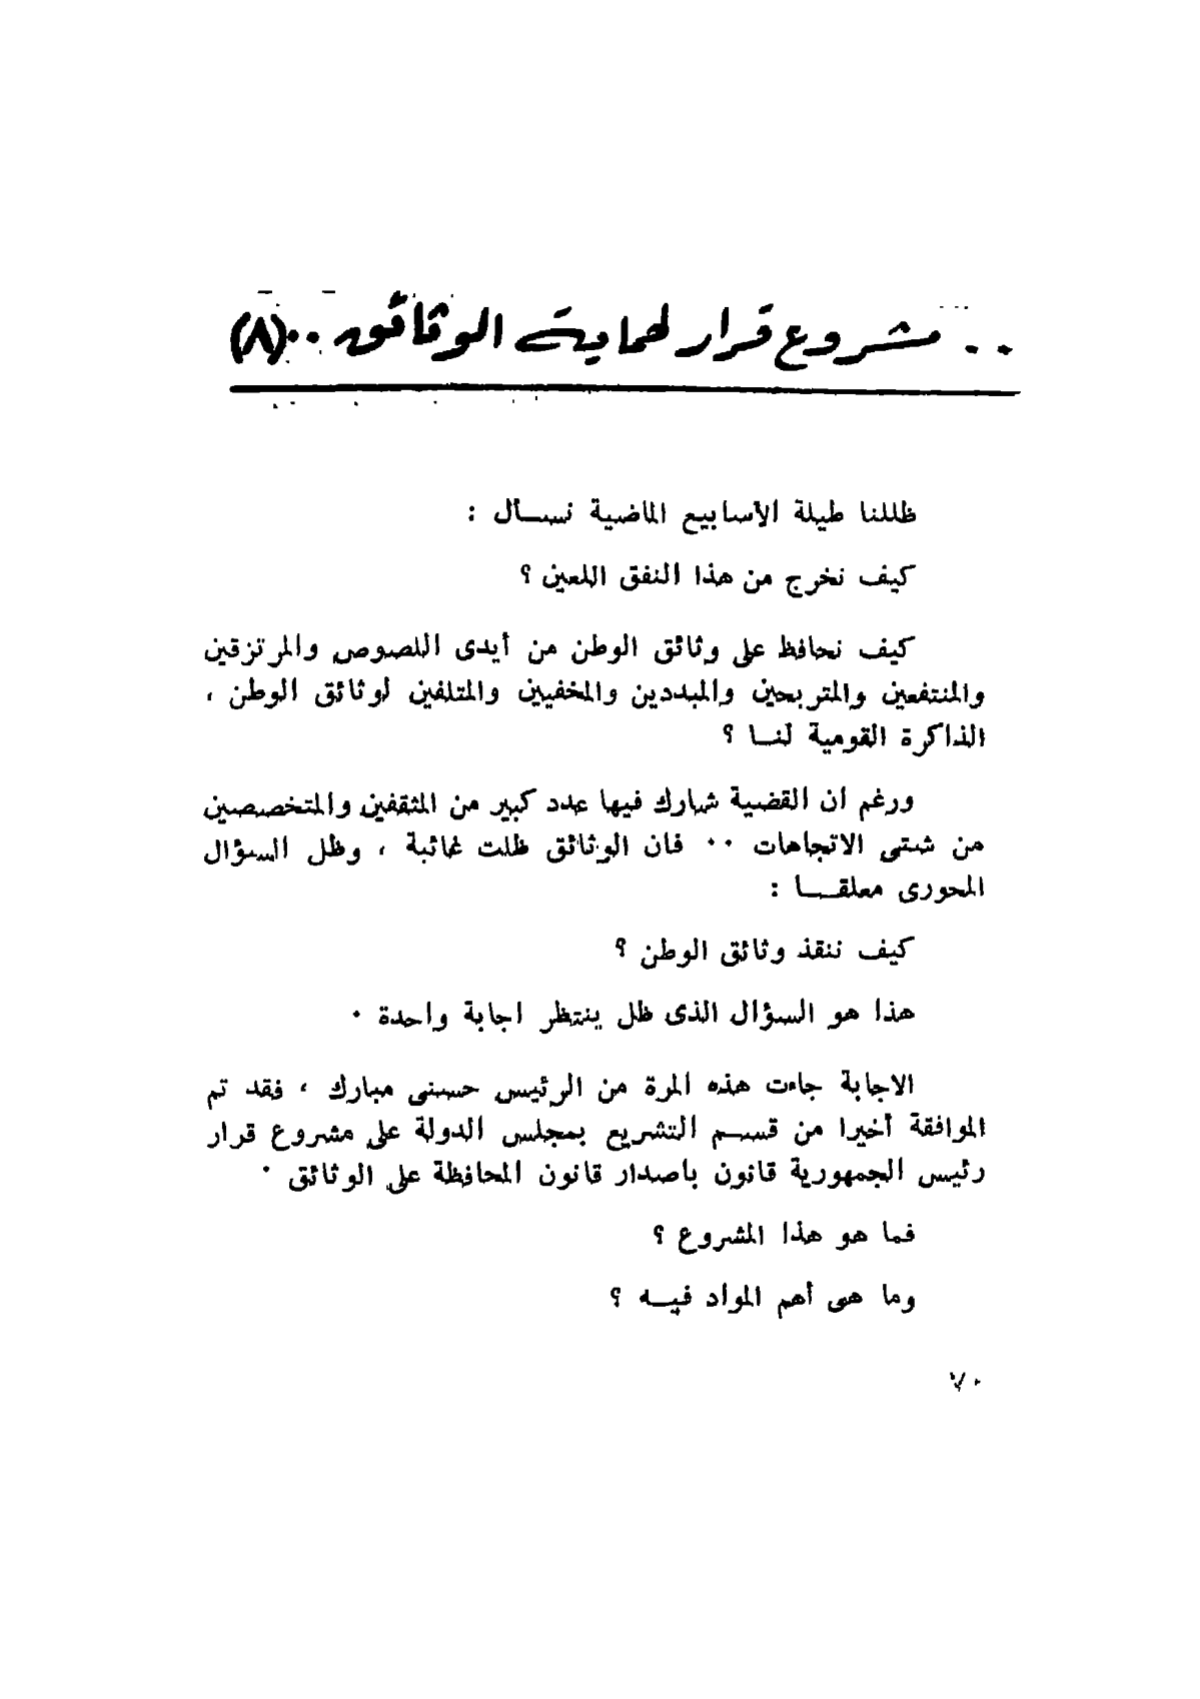 ٠٠ مشروع قرار لحماية الوثائق ٠٠ (٨)
ظللنا طيلة الأسابيع الماضية نســأل :
كيف نخرج من هذا النفق اللعين ؟
كيف نحافظ على وثائق الوطن من أيدى اللصوص والمرتزقين
والمنتفعين والمتربحين والمبددين والمخفيين والمتلفين لوثائق الوطن ،
الذاكرة القومية لنــا ؟
ورغم ان القضية شارك فيها عدد كبير من المثقفين والمتخصصين
من شتى الاتجاهات ٠٠ فان الوثائق ظلت غائبة ، وظل السؤال
المحورى معلقــا :
كيف ننقذ وثائق الوطن ؟
هذا هو السؤال الذى ظل ينتظر اجابة واحدة ٠
الاجابة جاءت هذه المرة من الرئيس حسنى مبارك ، فقد تم
الموافقة أخيرا من قســم التشريع بمجلس الدولة على مشروع قرار
رئيس الجمهورية قانون باصدار قانون المحافظة على الوثائق ٠
فما هو هذا المشروع ؟
وما هى أهم المواد فيــه ؟
٧٠